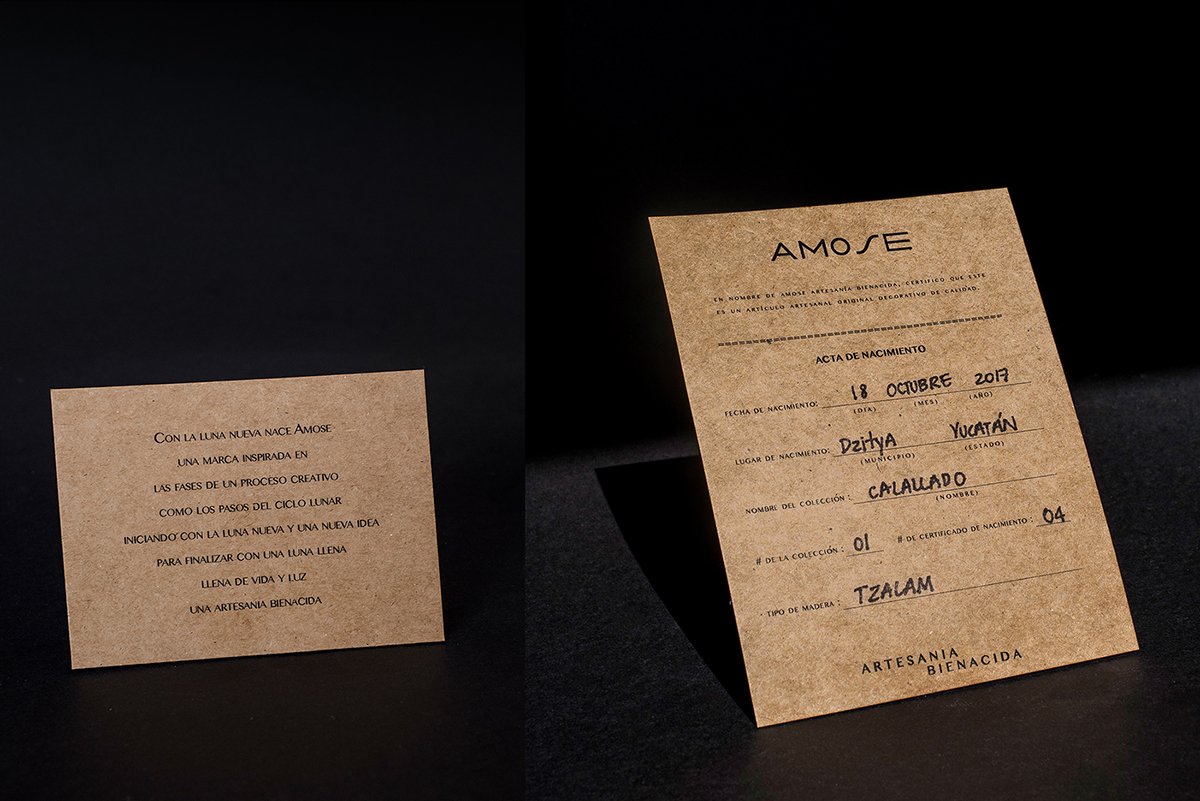 CON LA LUNA NUEVA NACE AMOSE
UNA MARCA INSPIRADA EN
LAS FASES DE UN PROCESO CREATIVO
COMO LOS PASOS DEL CICLO LUNAR
INICIANDO CON LA LUNA NUEVA Y UNA NUEVA IDEA
PARA FINALIZAR CON UNA LUNA LLENA
LLENA DE VIDA Y LUZ
UNA ARTESANIA BIENACIDA
AMOSE
EN NOMBRE DE AMOSE ARTESANÍA BIENACIDA, CERTIFICO QUE ESTE
ES UN ARTÍCULO ARTESANAL ORIGINAL DECORATIVO DE CALIDAD.
ACTA DE NACIMIENTO
FECHA DE NACIMIENTO: 18 OCTUBRE 2017
(DÍA) (MES) (AÑO)
LUGAR DE NACIMIENTO: Dzitya YUCATÁN
(MUNICIPIO) (ESTADO)
NOMBRE DEL COLECCIÓN: CALALLADO
(NOMBRE)
# DE LA COLECCIÓN: 01 # DE CERTIFICADO DE NACIMIENTO: 04
TIPO DE MADERA: TZALAM
ARTESANIA
BIENACIDA